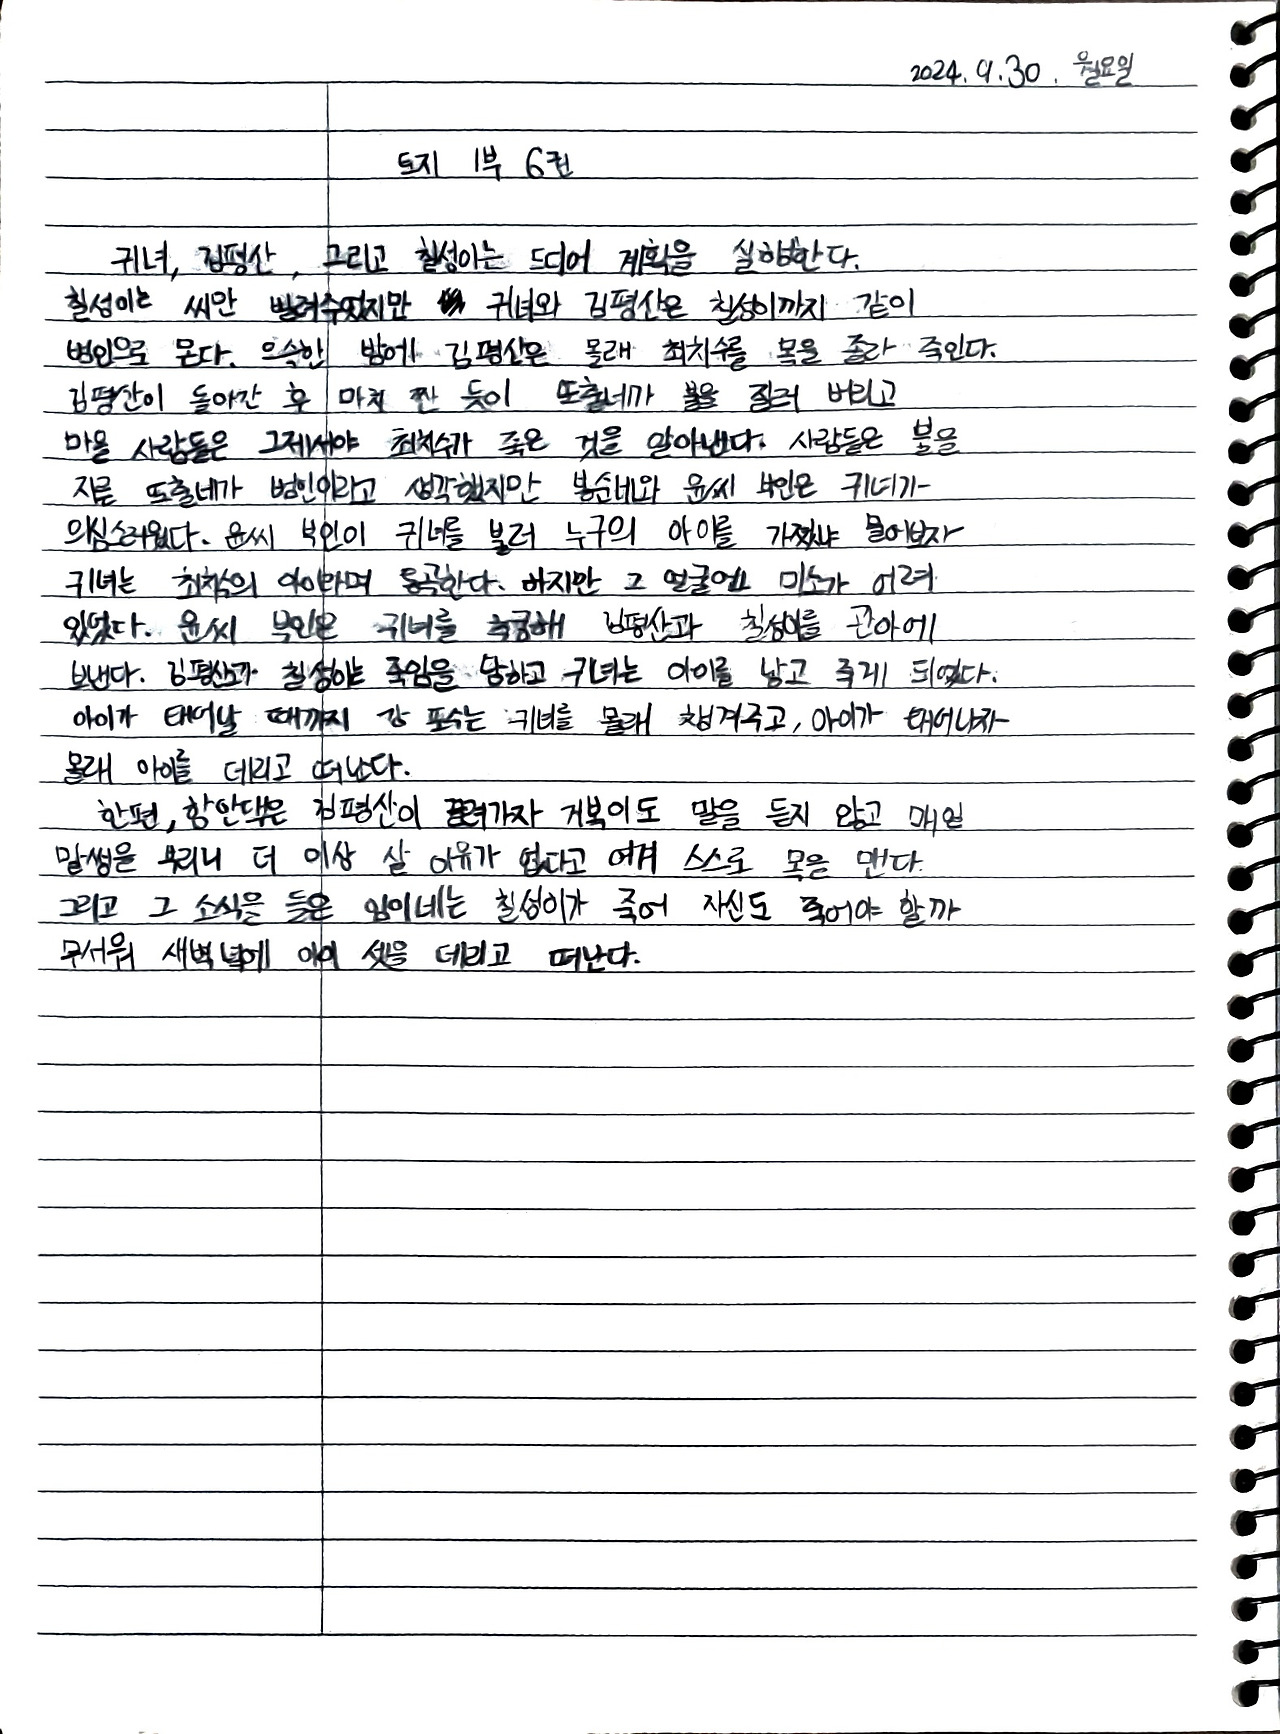 2024. 9. 30. 월요일
토지 1부 6권
귀녀, 김평산, 그리고 칠성이는 드디어 계획을 실행한다.
칠성이는 씨만 빌려주었지만 귀녀와 김평산은 칠성이까지 같이
범인으로 몬다. 으슥한 밤에 김평산은 몰래 최치수를 목을 졸라 죽인다.
김평산이 돌아간 후 마치 짠 듯이 또출네가 불을 질러 버리고
마을 사람들은 그제서야 최치수가 죽은 것을 알아낸다. 사람들은 불을
지른 또출네가 범인이라고 생각했지만 봉순네와 윤씨 부인은 귀녀가
의심스러웠다. 윤씨 부인이 귀녀를 불러 누구의 아이를 가졌냐 물어보자
귀녀는 최치수의 아이라며 통곡한다. 하지만 그 얼굴엔 미소가 어려
있었다. 윤씨 부인은 귀녀를 추궁해 김평산과 칠성이를 관아에
보낸다. 김평산과 칠성이는 죽임을 당하고 귀녀는 아이를 낳고 죽게 되었다.
아이가 태어날 때까지 강 포수는 귀녀를 몰래 챙겨주고, 아이가 태어나자
몰래 아이를 데리고 떠난다.
한편, 함안댁은 김평산이 끌려가자 거복이도 말을 듣지 않고 매일
말썽을 부리니 더 이상 살 이유가 없다고 여겨 스스로 목을 맨다.
그리고 그 소식을 들은 임이네는 칠성이가 죽어 자신도 죽어야 할까
무서워 새벽녘에 아이 셋을 데리고 떠난다.